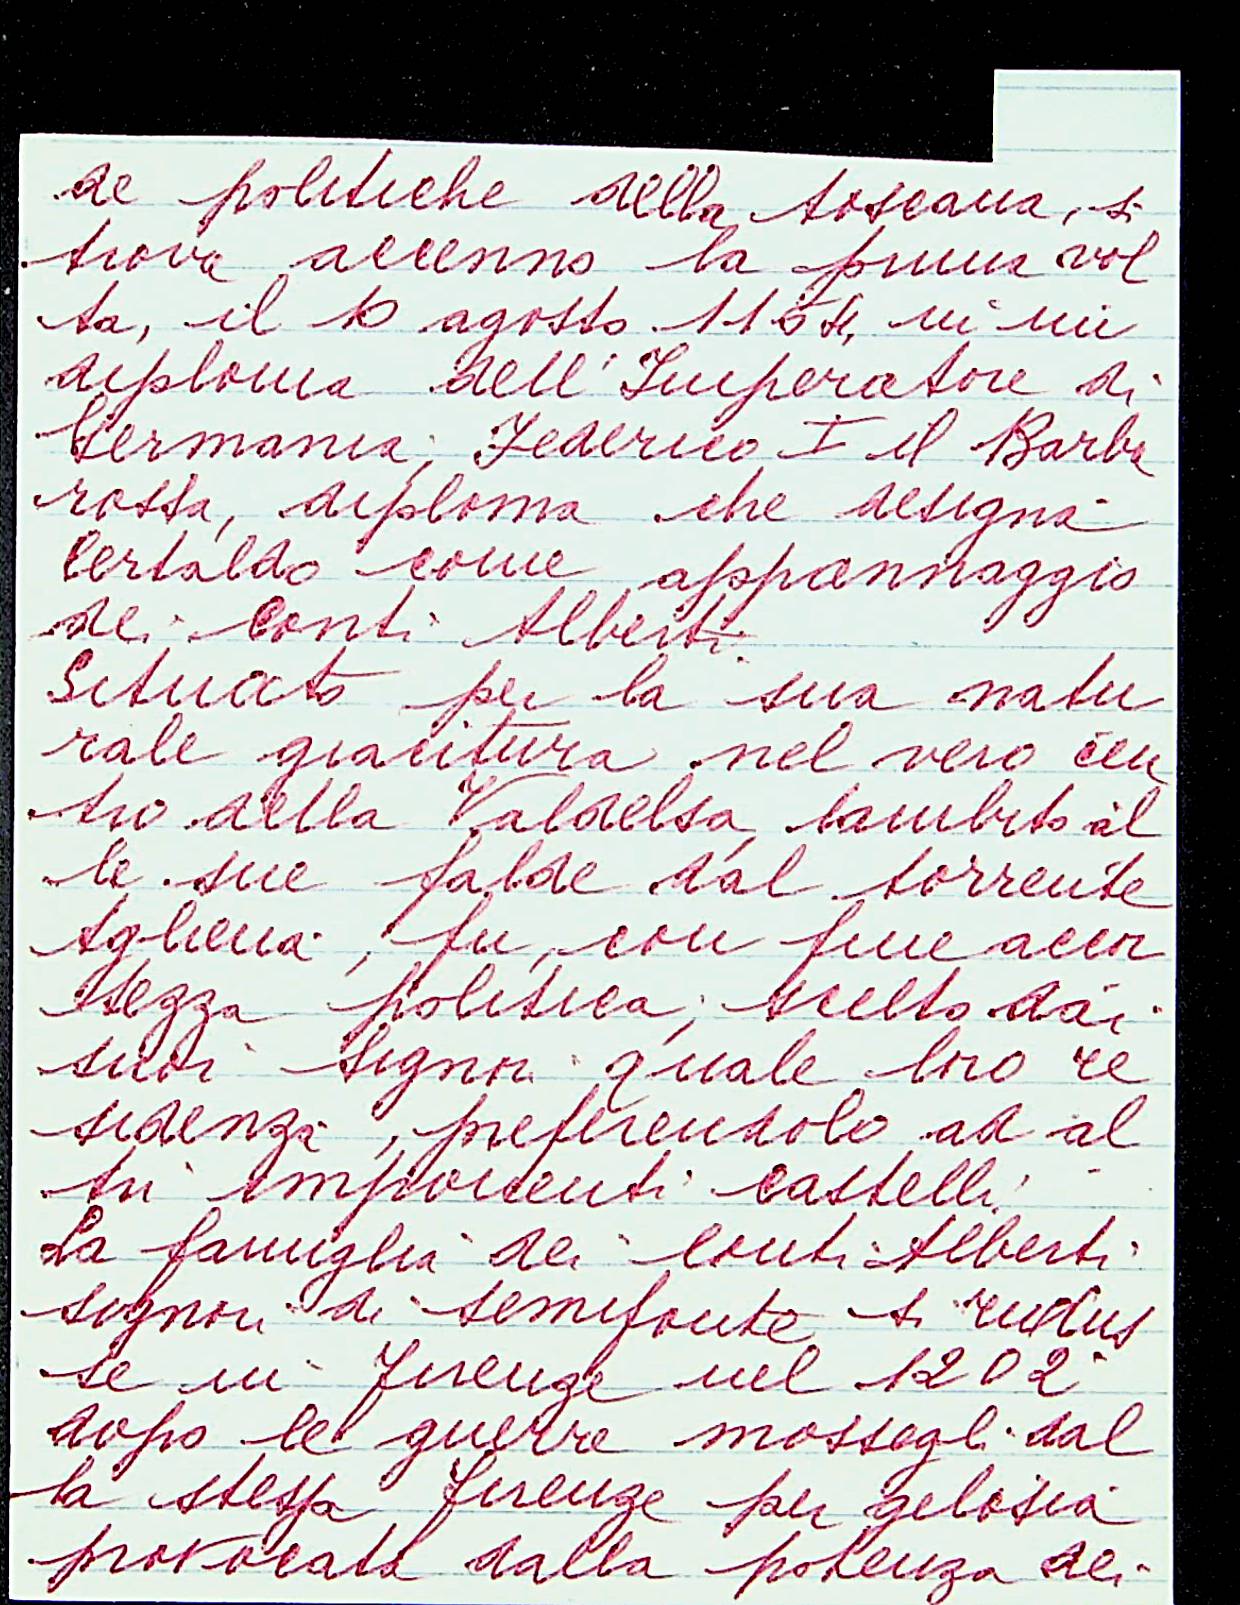 de politiche della toscana, si
trova accenno la prima vol
ta, il 10 agosto 1164, in un
diploma dell'Imperatore di
Germania, Federico I il Barba
rossa, diploma che designa
Certaldo come appannaggio
dei Conti Alberti.
Situato per la sua natu
rale giacitura nel vero cen
tro della Valdelsa, lambito al
le sue falde dal torrente
Agliena, fu, con fine accor
tezza politica, scelto dai
suoi Signori quale loro re
sidenza, preferendolo ad al
tri importanti castelli.
La famiglia dei Conti Alberti
signori di Semifonte si ridus
se in Firenze nel 1202
dopo le guerre mossegli dal
la stessa Firenze per gelosia
provocata dalla potenza dei